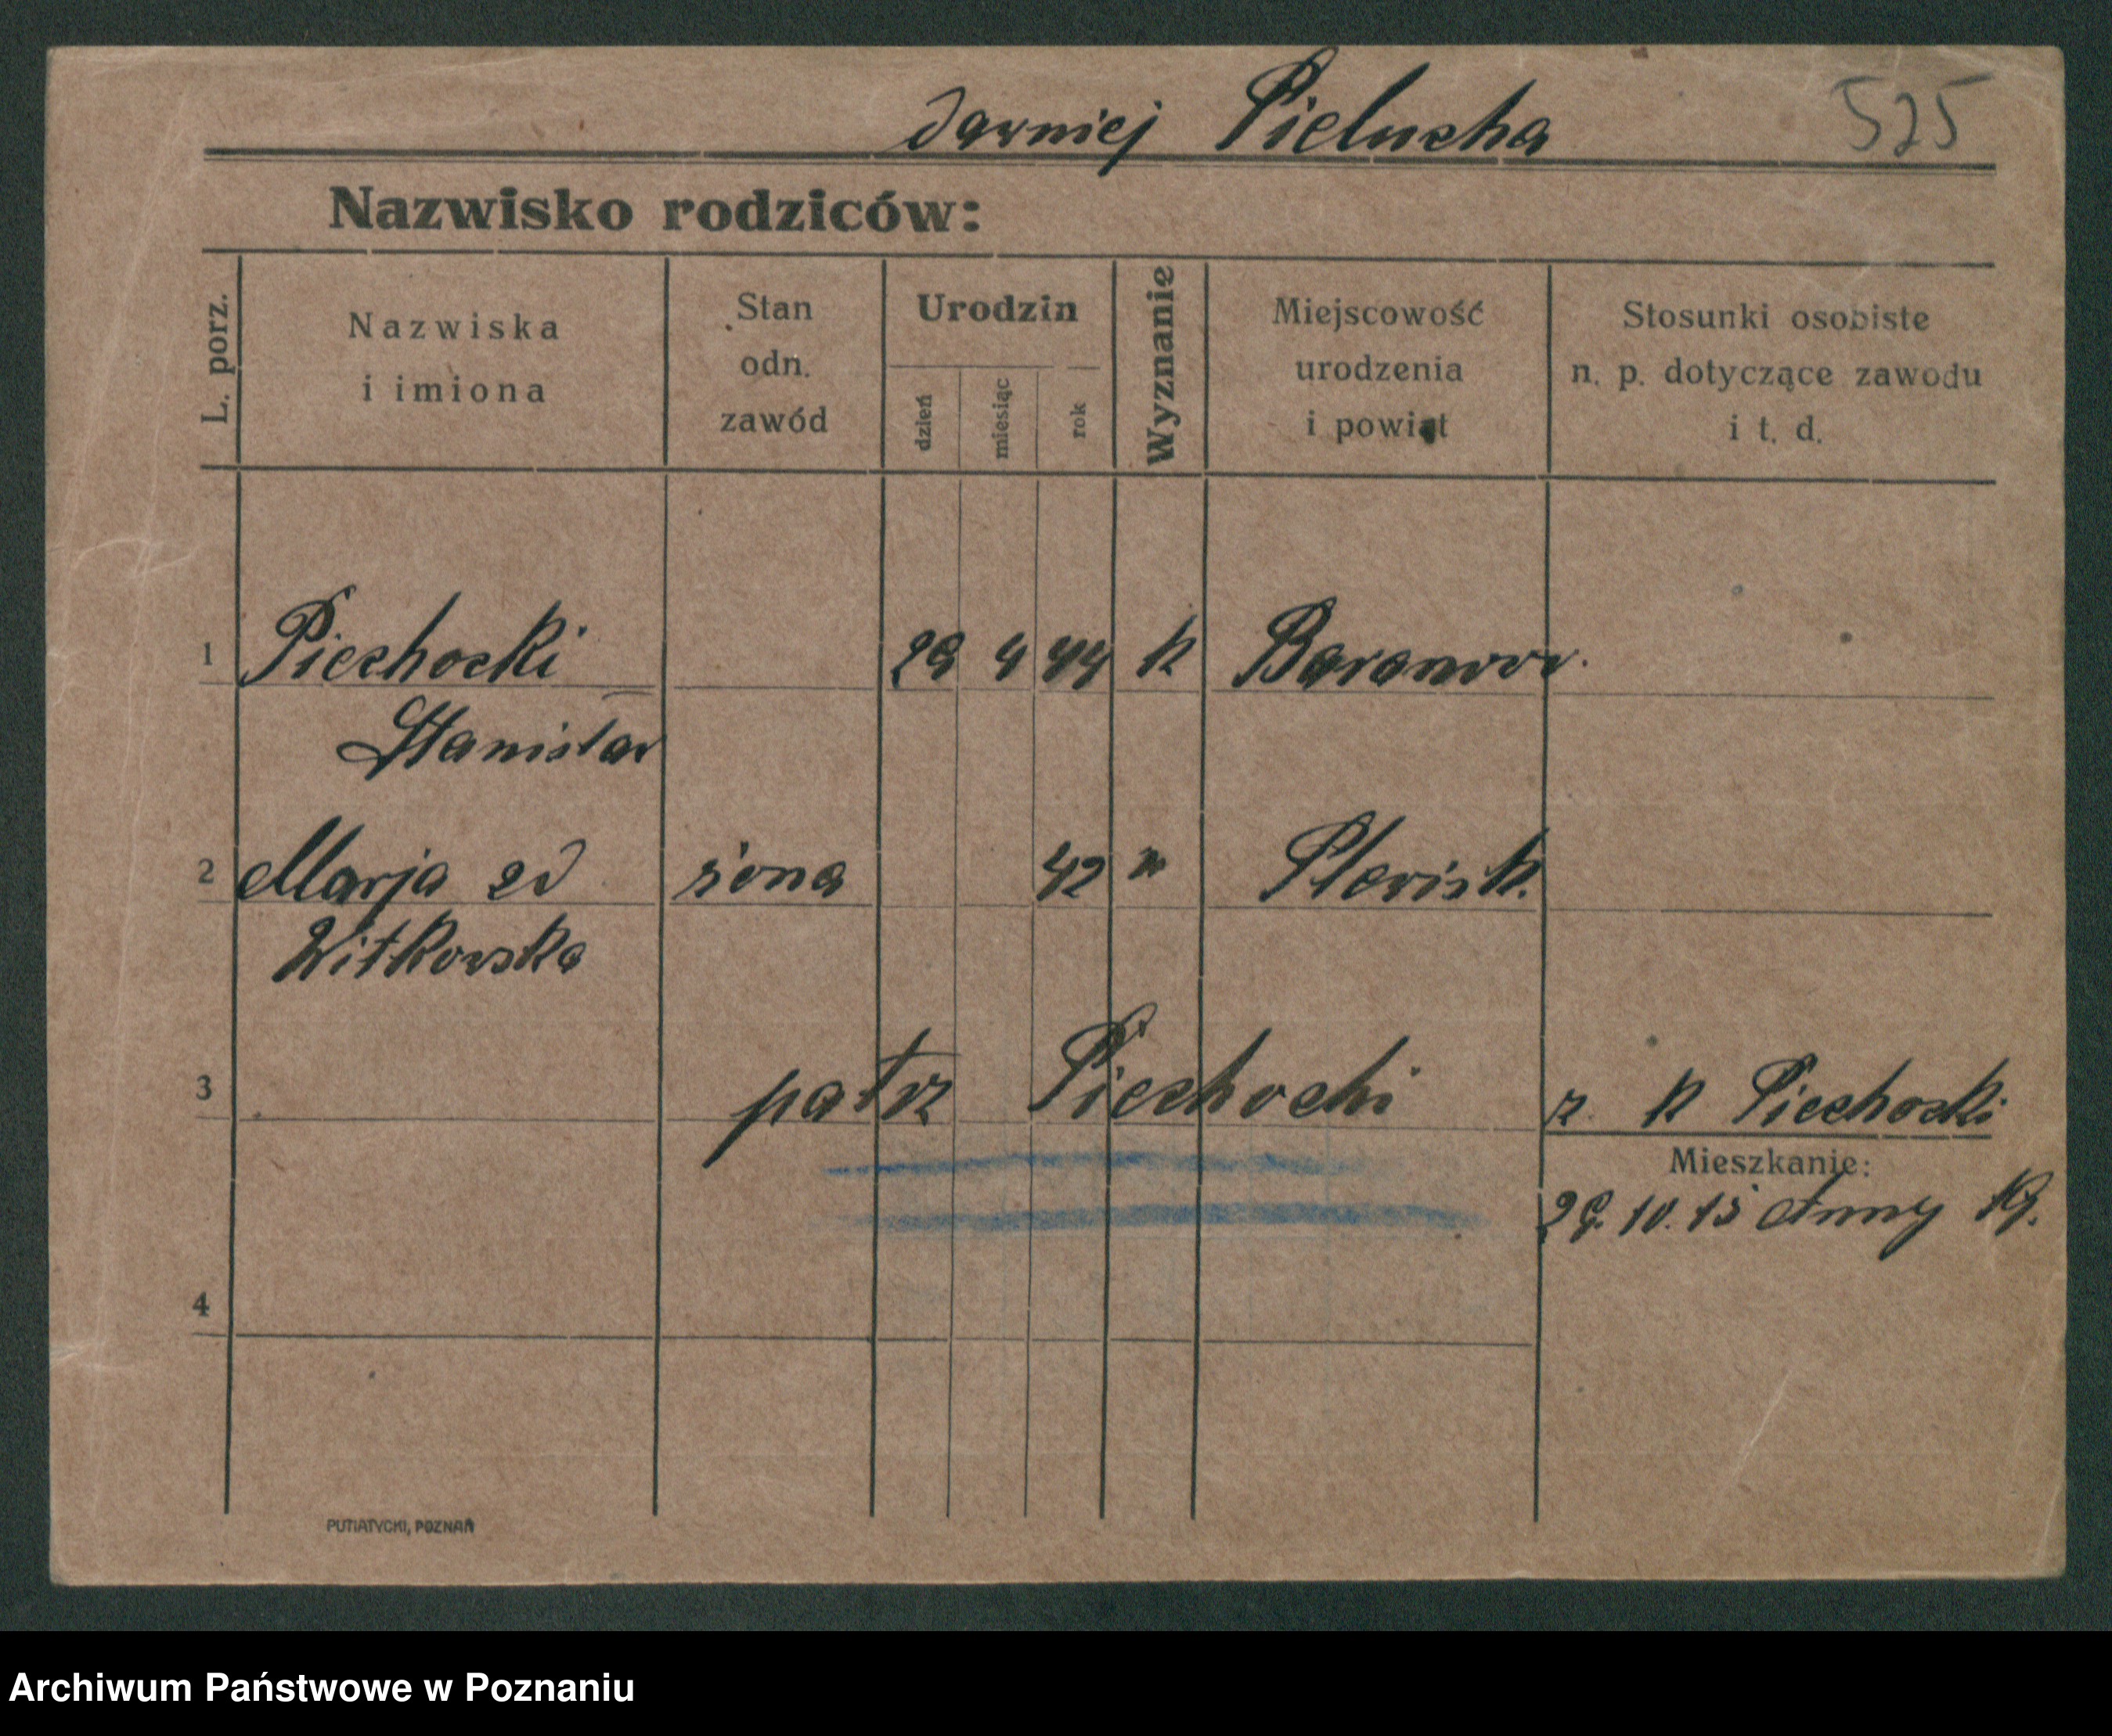 dawniej Pielucha
525
Nazwisko rodziców:
L. porz.
Nazwiska i imiona
Stan odn. zawód
Urodzin
dzień
miesiąc
rok
Wyznanie
Miejscowość urodzenia i powiat
Stosunki osobiste n. p. dotyczące zawodu i t. d.
1 Piechocki 29 4 44 k Baranow.
Stanisław
2 Marja zd żona 42 "
Witkowska
3 patrz Piechocki
z. k Piechocki
Mieszkanie:
29. 10. 15 Anny 19.
4
PUTIATYCKI, POZNAŃ
Archiwum Państwowe w Poznaniu